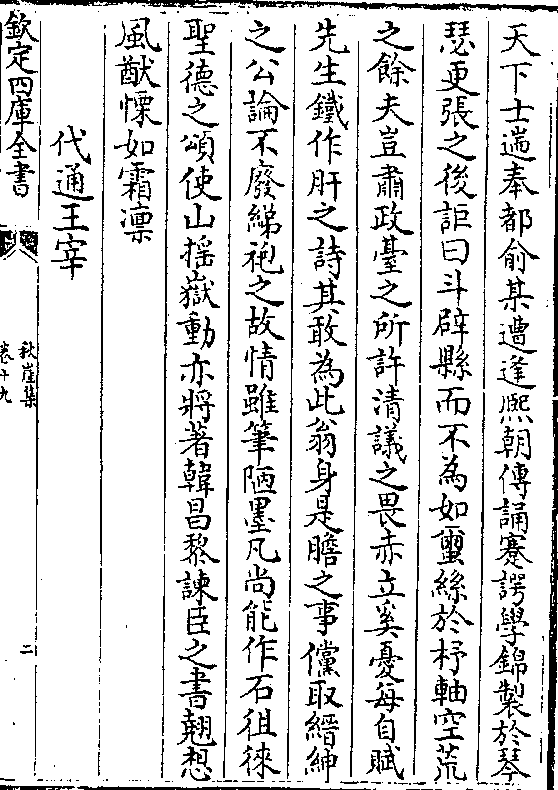 天下士遄奉都俞某遭逢熈朝傳誦蹇諤學錦製於琴
瑟更張之後詎曰斗辟縣而不為如蠒絲於杼軸空荒
之餘夫豈肅政臺之所許清議之畏赤立奚憂每自賦
先生鐵作肝之詩其敢為此翁身是膽之事儻取縉紳
之公論不廢綈袍之故情雖筆陋墨凡尚能作石徂徠
聖德之頌使山揺嶽動亦將著韓昌黎諫臣之書翹想
風猷慄如霜凜
代通王宰
欽定四庫全書
秋崖集
卷十九
二